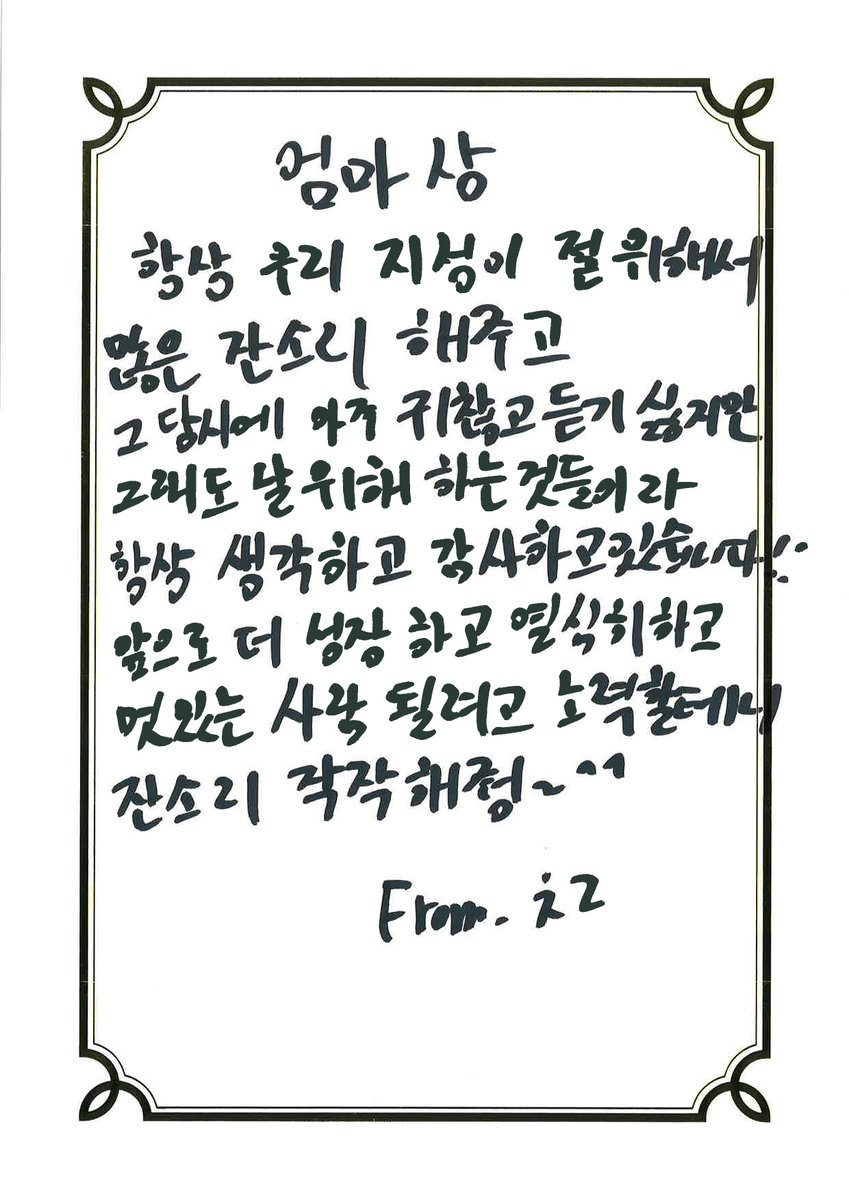 엄마 상
항상 우리 지성이 절 위해서
많은 잔소리 해주고
그 당시에 아주 귀찮고 듣기 싫지만
그래도 날 위해 하는 것들이라
항상 생각하고 감사하고 있습니다!
앞으로 더 성장 하고 열식히하고
멋있는 사람 될려고 노력할테니
잔소리 작작해줭~^^
From. ㅊㄹ